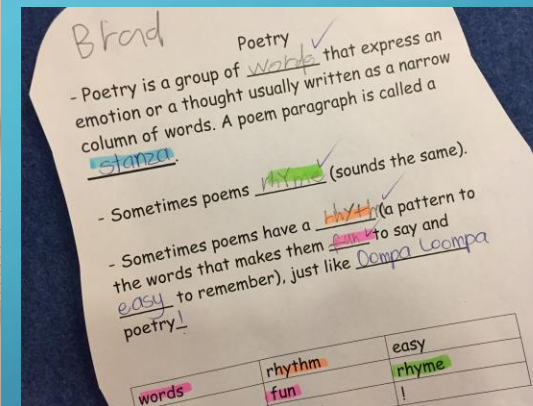 Brad
Poetry
- Poetry is a group of words that express an
emotion or a thought usually written as a narrow
column of words. A poem paragraph is called a
stanza.
- Sometimes poems rhyme (sounds the same).
- Sometimes poems have a rhythm (a pattern to
the words that makes them fun to say and
easy to remember), just like Oompa Loompa
poetry!
words rhythm easy
fun rhyme
!